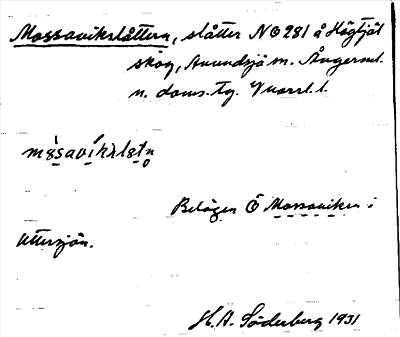 Mossavikslåttern, slåtter NO 281 å Högtjäl
skog, Anundsjö sn. Ångerml.
n. doms. tg. Vnorrl. l.
Belägen Ö Mossaviken i
Uttersjön.
H. A. Söderberg 1931